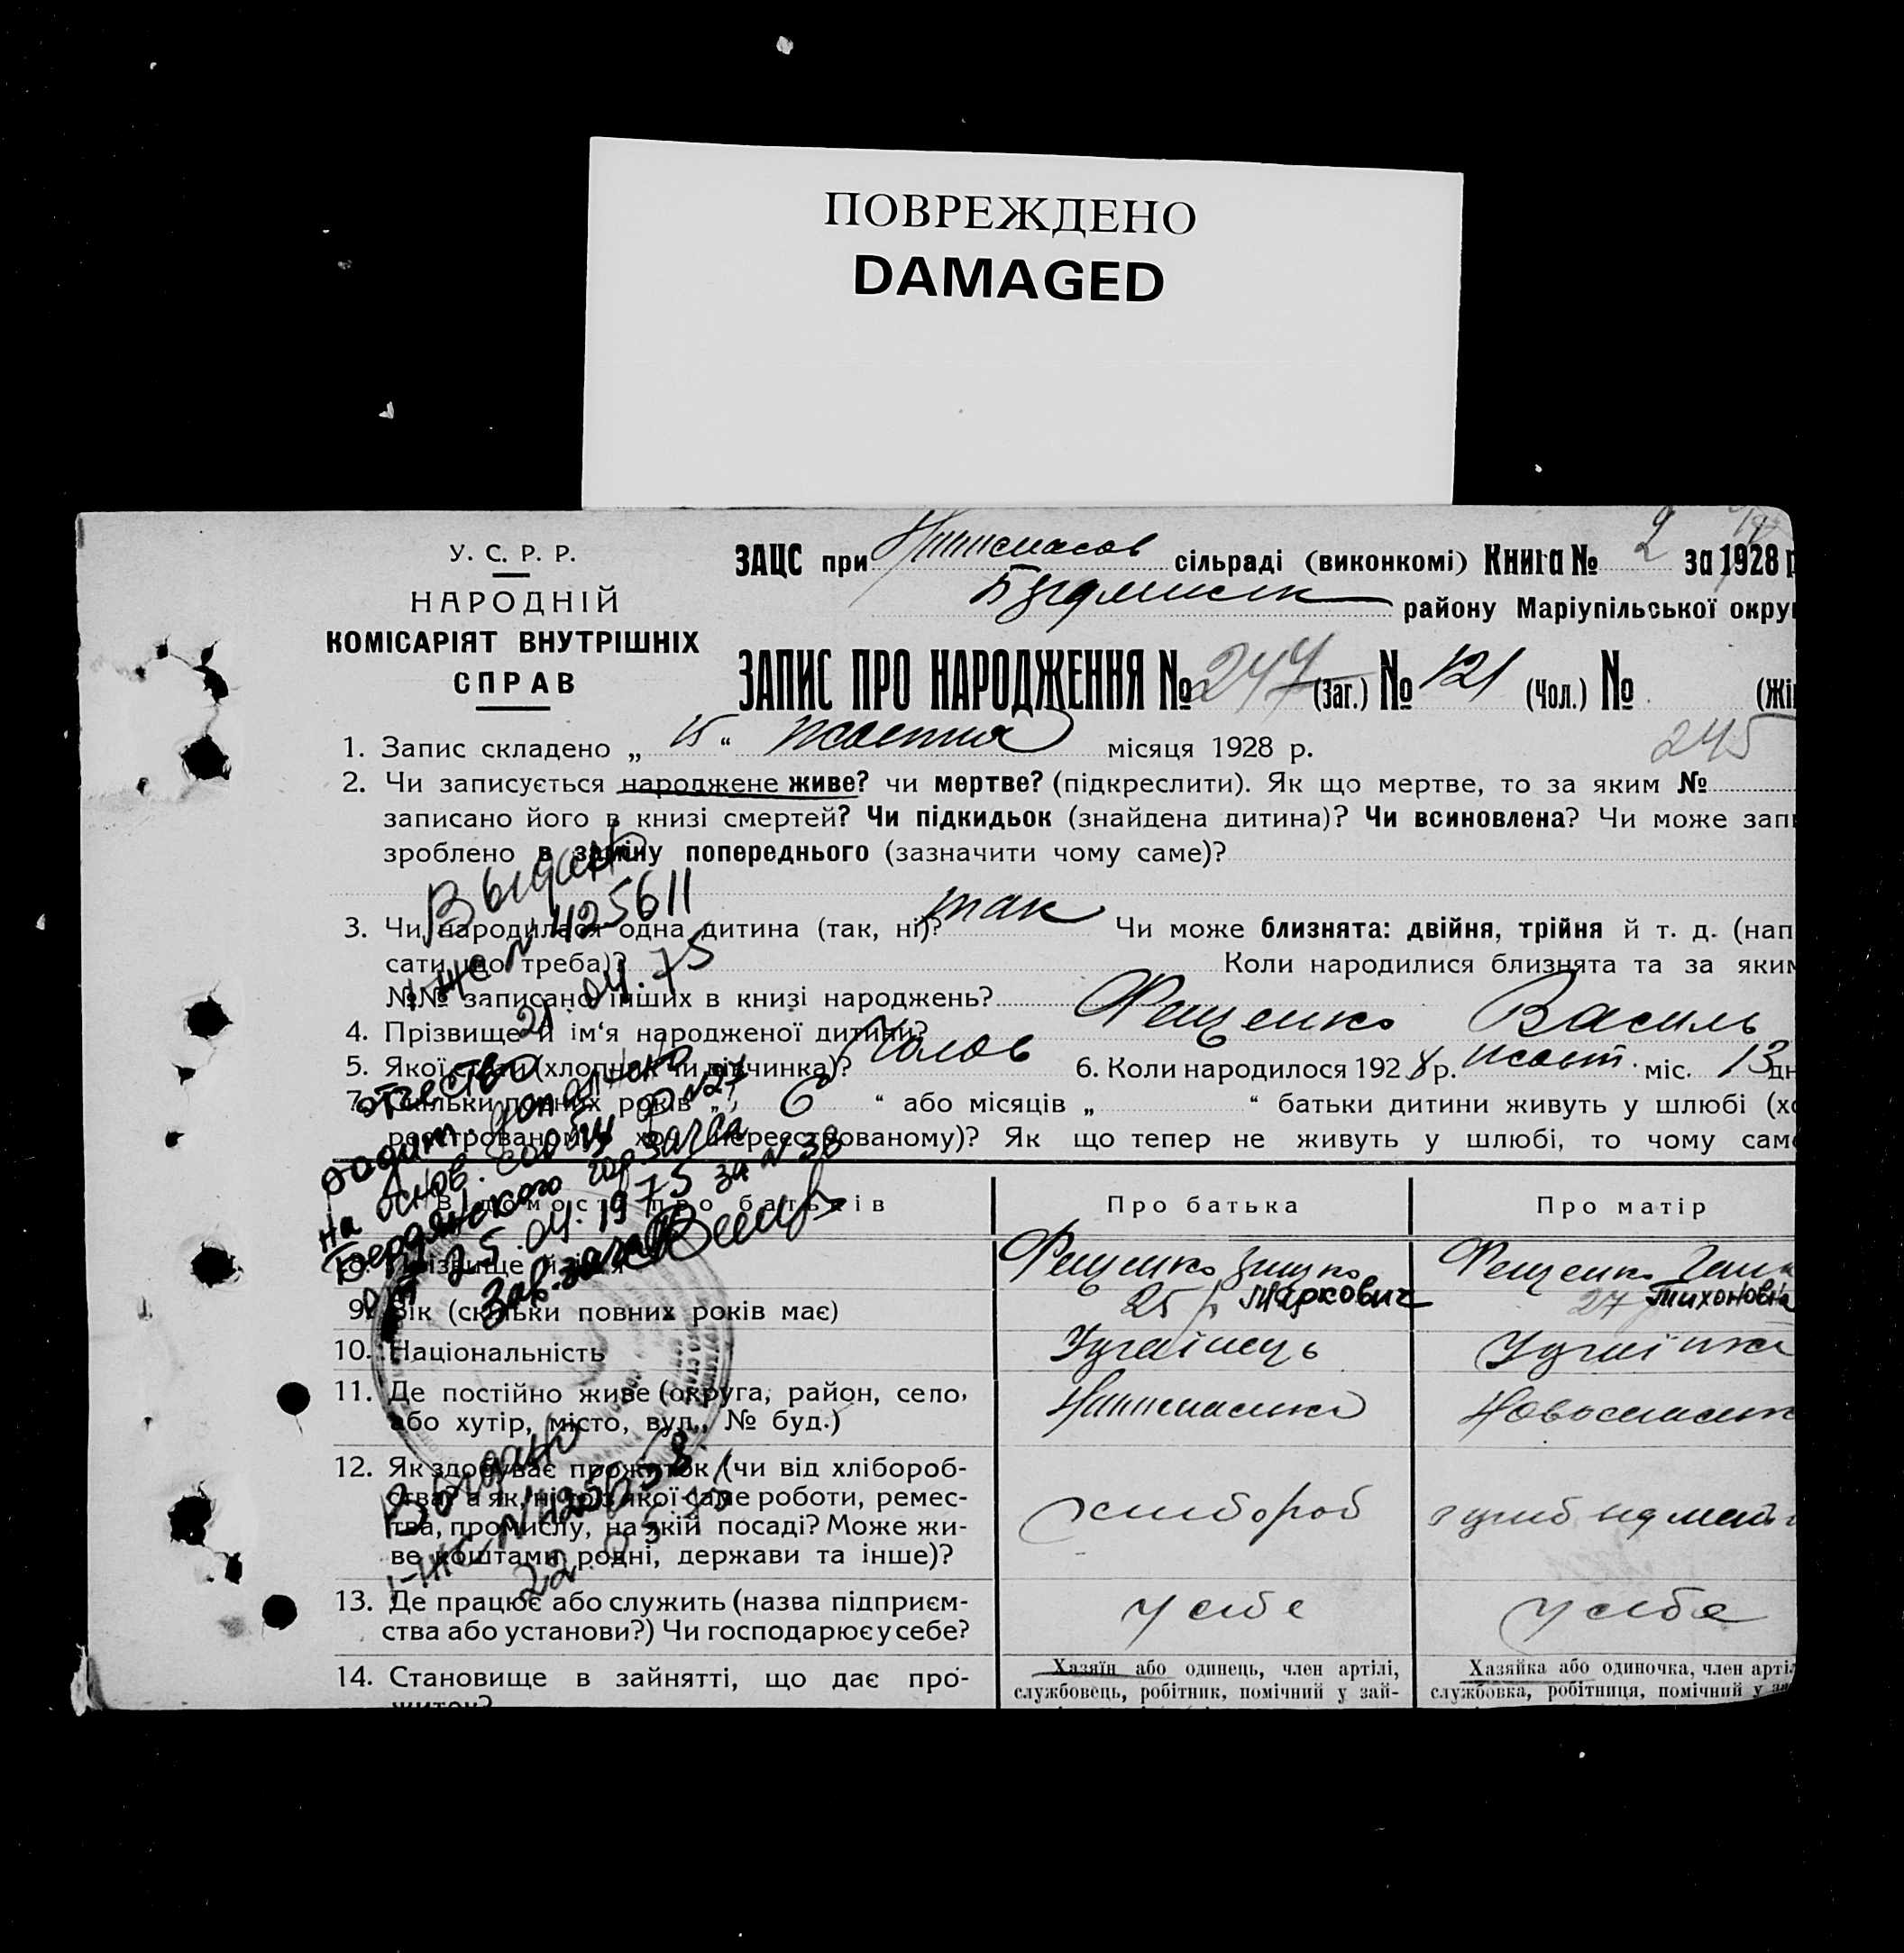 ПОВРЕЖДЕНО
DAMAGED
У. С. Р. Р.
НАРОДНІЙ
КОМІСАРІЯТ ВНУТРІШНІХ
СПРАВ
ЗАЦС при сільраді (виконкомі) Книга № 2 за 1928 р
району Маріупільської окру
ЗАПИС ПРО НАРОДЖЕННЯ № 244 (Заг.) № 121 (Чол.) № (Жі
245
1. Запис складено „ 15 “ жовтня місяця 1928 р.
2. Чи записується народжене живе? чи мертве? (підкреслити). Як що мертве, то за яким №
записано його в книзі смертей? Чи підкидьок (знайдена дитина)? Чи всиновлена? Чи може зап
зроблено в заміну попереднього (зазначити чому саме)?
3. Чи народилася одна дитина (так, ні)? так Чи може близнята: двійня, трійня й т. д. (нап
сати що треба)? Коли народилися близнята та за яким
№№ записано інших в книзі народжень?
4. Прізвище й ім‘я народженої дитини? Фещенко Василь
5. Якої статі (хлопчик чи дівчинка)? Чолов 6. Коли народилося 1928 р. жовт. міс. 13 дн
7. Скільки повних років „ 6 “ або місяців „ “ батьки дитини живуть у шлюбі (х
реєстрованому)? Як що тепер не живуть у шлюбі, то чому сам
Выдано
I-ЖС № 425611
21.04.75
отчество
родит. дописано
на основ. сообщ №27
Бердянского горзагса
от 25.04.1975 за № 38
Зав. загса
Відомості про батьків
Про батька
Про матір
8. Прізвище й ім'я Фещенко Грицко Маркович Фещенко Ганн Тихоновна
9. Вік (скільки повних років має) 25 р 27
10. Національність Українець Українка
11. Де постійно живе (округа, район, село,
або хутір, місто, вул., № буд.) Новоспаськ
12. Як здобуває прожиток (чи від хлібороб-
ства? а як ні, то з якої саме роботи, ремес-
тва, промислу, на якій посаді? Може жи-
ве коштами родні, держави та інше)? хлібороб
Выдано
22.05.75
13. Де працює або служить (назва підприєм-
ства або установи?) Чи господарює у себе? у себе у себе
14. Становище в зайнятті, що дає про-
житок?
Хазяїн або одинець, член артілі,
службовець, робітник, помічний у зай-
Хазяйка або одиночка, член арті
службовка, робітниця, помічний у за